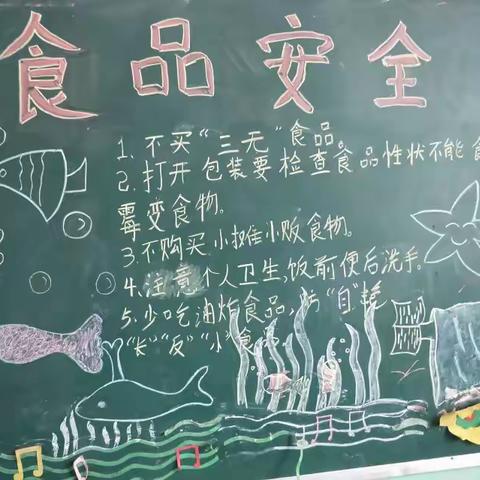 食品安全
1. 不买“三无”食品。
2. 打开包装要检查食品性状不能食
霉变食物。
3. 不购买小摊小贩食物。
4. 注意个人卫生,饭前便后洗手。
5. 少吃油炸食品,防“自”
“长”“反”“小”食